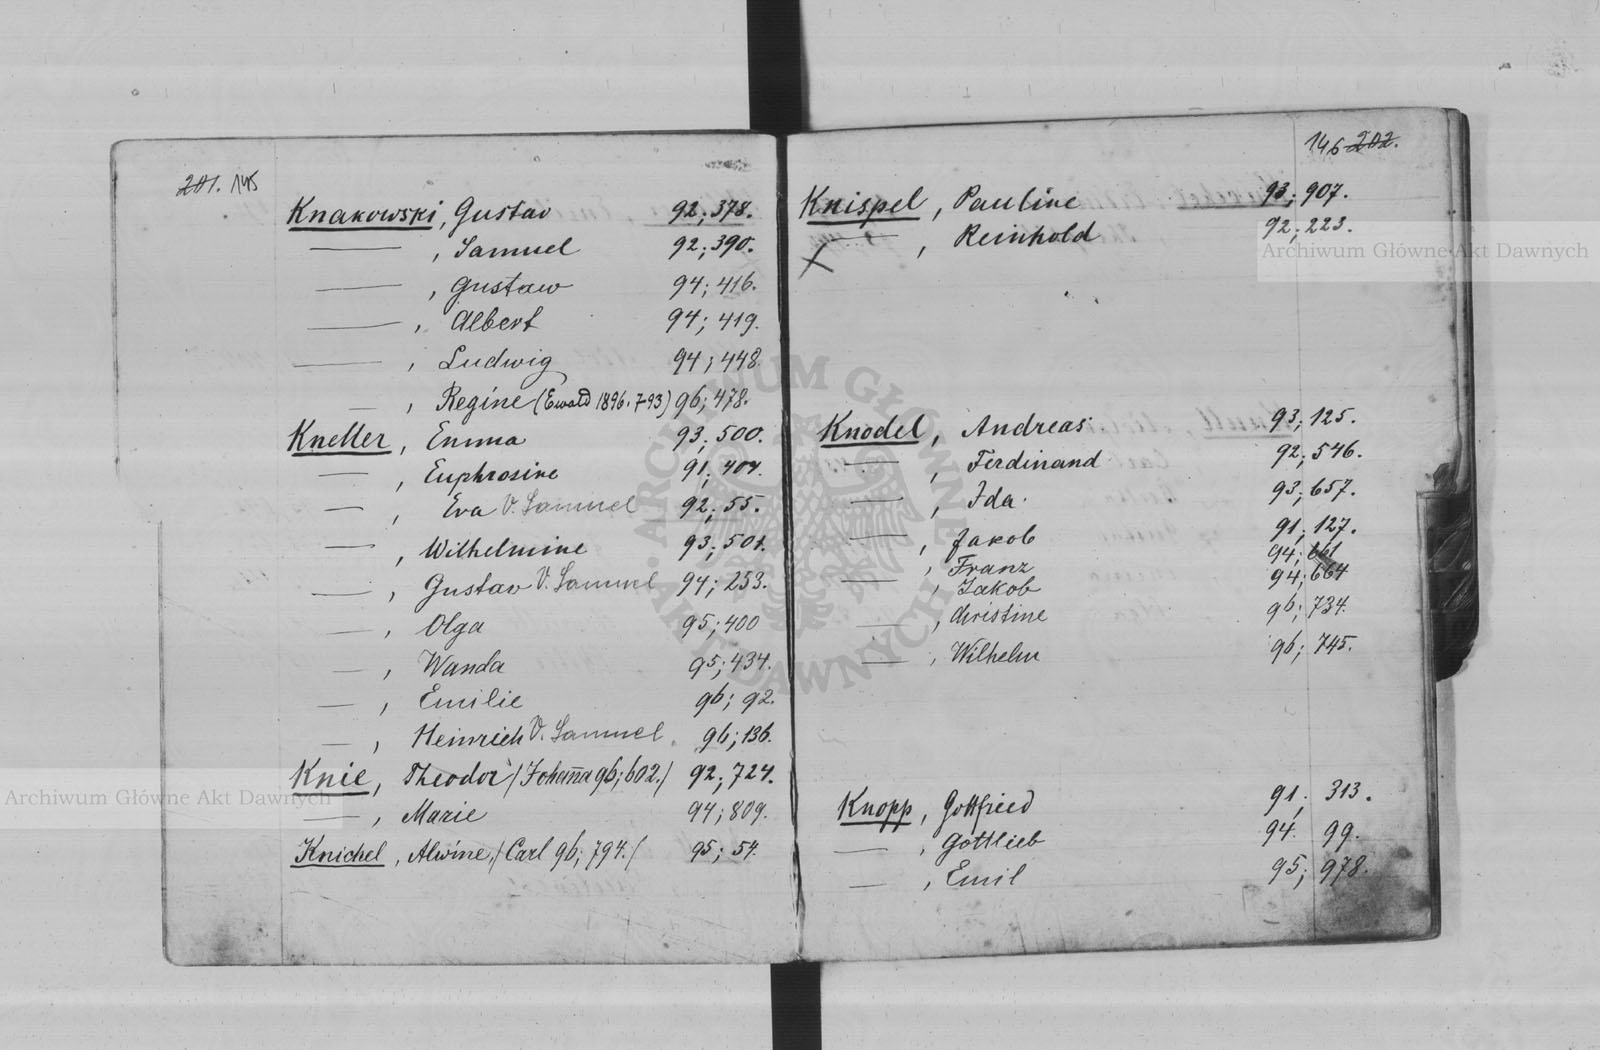 201. 145
Knakowski, Gustav 92; 378.
—, Samuel 92; 390.
—, Gustaw 94; 416.
—, Albert 94; 419.
—, Ludwig 94; 448.
—, Regine (Ewald 1896. 793) 96; 478.
Kneller, Emma 93; 500.
—, Euphrosine 91; 407.
—, Eva V. Samuel 92; 55.
—, Wilhelmine 93; 501.
—, Gustav V. Samuel 94; 253.
—, Olga 95; 400
—, Wanda 95; 434.
—, Emilie 96; 92.
—, Heinrich V. Samuel 96; 136.
Knie, Theodor /Johanna 96; 602./ 92; 724.
—, Marie 94; 809.
Knichel, Alwine, /Carl 96; 794./ 95; 54.
146 202.
Knispel, Pauline 93; 907.
—, Reinhold 92; 223.
Knodel, Andreas 93; 125.
—, Ferdinand 92; 546.
—, Ida 93; 657.
—, Jakob 91; 127.
, Franz 94; 661
—, Jakob 94; 664
—, Christine 96; 734.
—, Wilhelm 96; 745.
Knopp, Gottfried 91; 313.
—, Gottlieb 94. 99.
—, Emil 95; 978.
Archiwum Główne Akt Dawnych
Archiwum Główne Akt Dawnych
ARCHIWUM GŁÓWNE AKT DAWNYCH